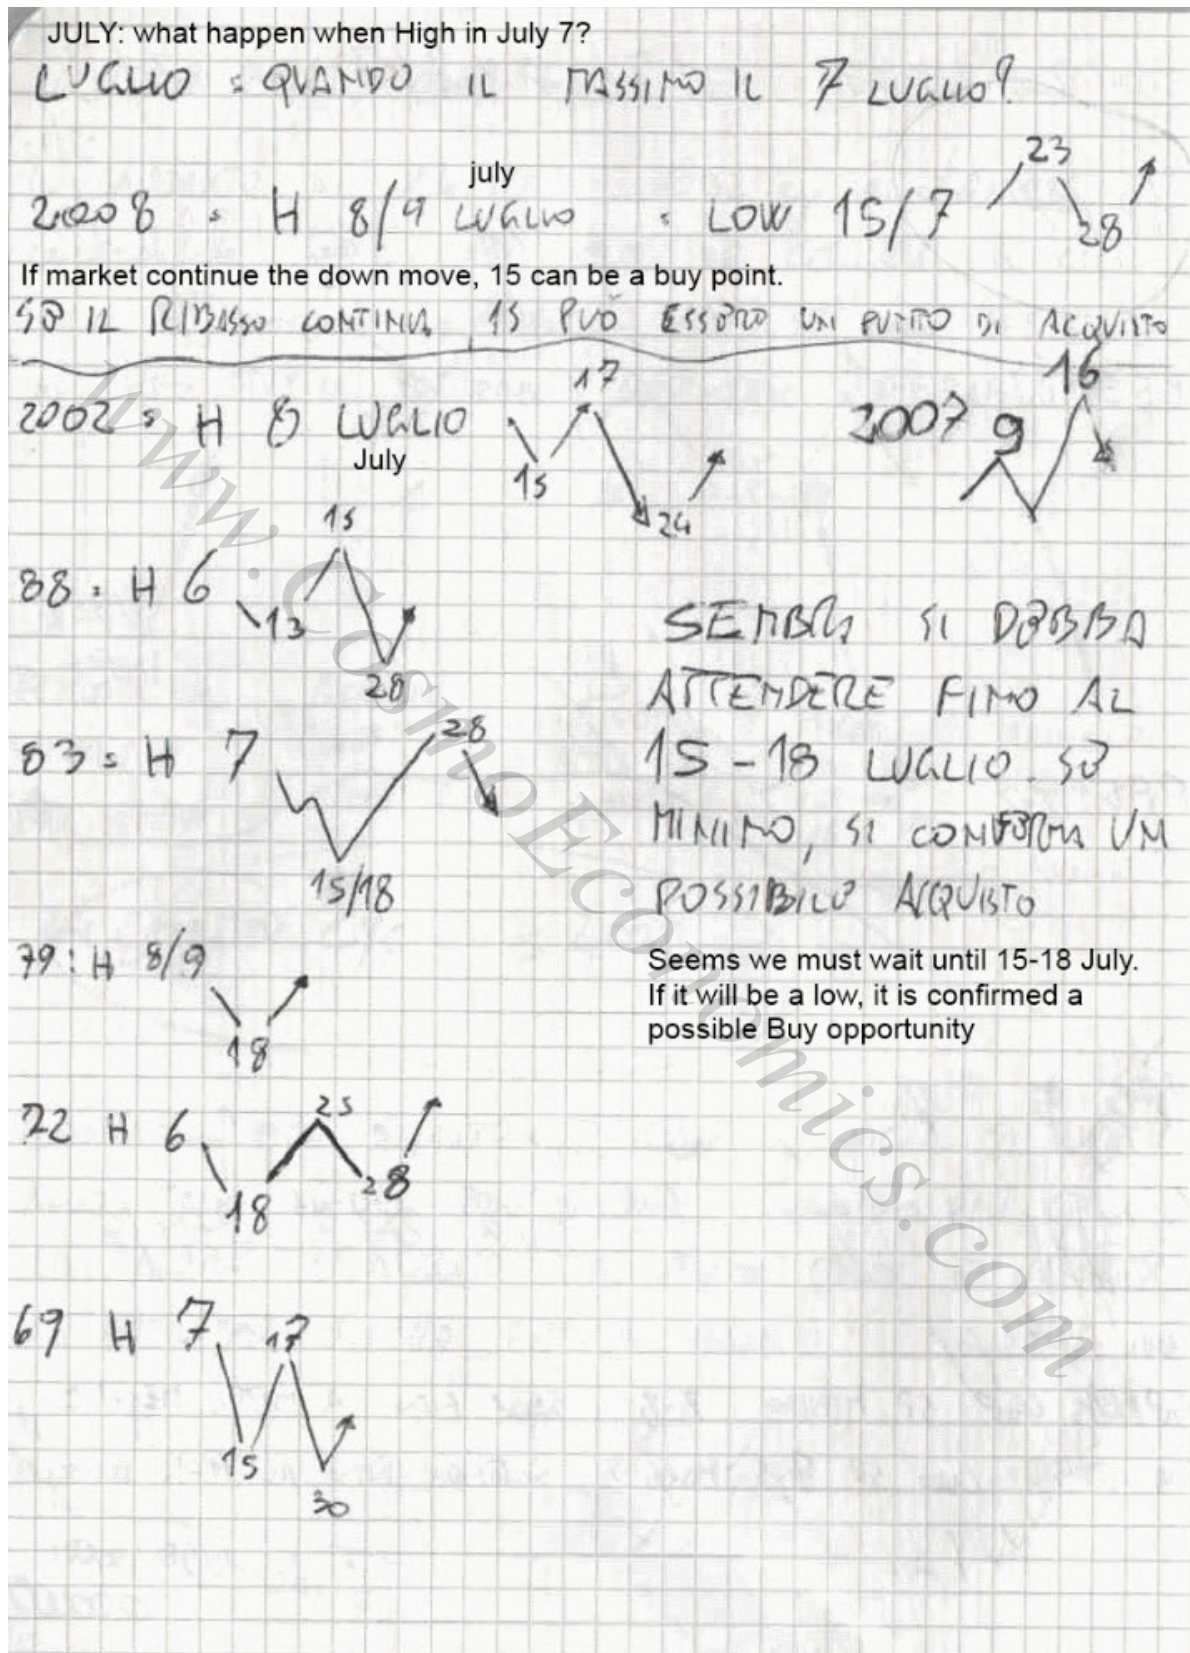 JULY: what happen when High in July 7?
LUGLIO = QUANDO IL MASSIMO IL 7 LUGLIO?
july
2008 = H 8/9 LUGLIO = LOW 15/7 23 28
If market continue the down move, 15 can be a buy point.
SE IL RIBASSO CONTINUA, 15 PUÒ ESSERE UN PUNTO DI ACQUISTO
2002 = H 8 LUGLIO 15 17 24
July
2007 9 16
88 = H 6 13 15 28
SEMBRA SI DEBBA
ATTENDERE FINO AL
15-18 LUGLIO. SE
MINIMO, SI CONFERMA UN
POSSIBILE ACQUISTO
83 = H 7 15/18 28
Seems we must wait until 15-18 July.
If it will be a low, it is confirmed a
possible Buy opportunity
79: H 8/9 18
72 H 6 18 25 28
69 H 7 15 17 30
www.CosmoEconomics.com